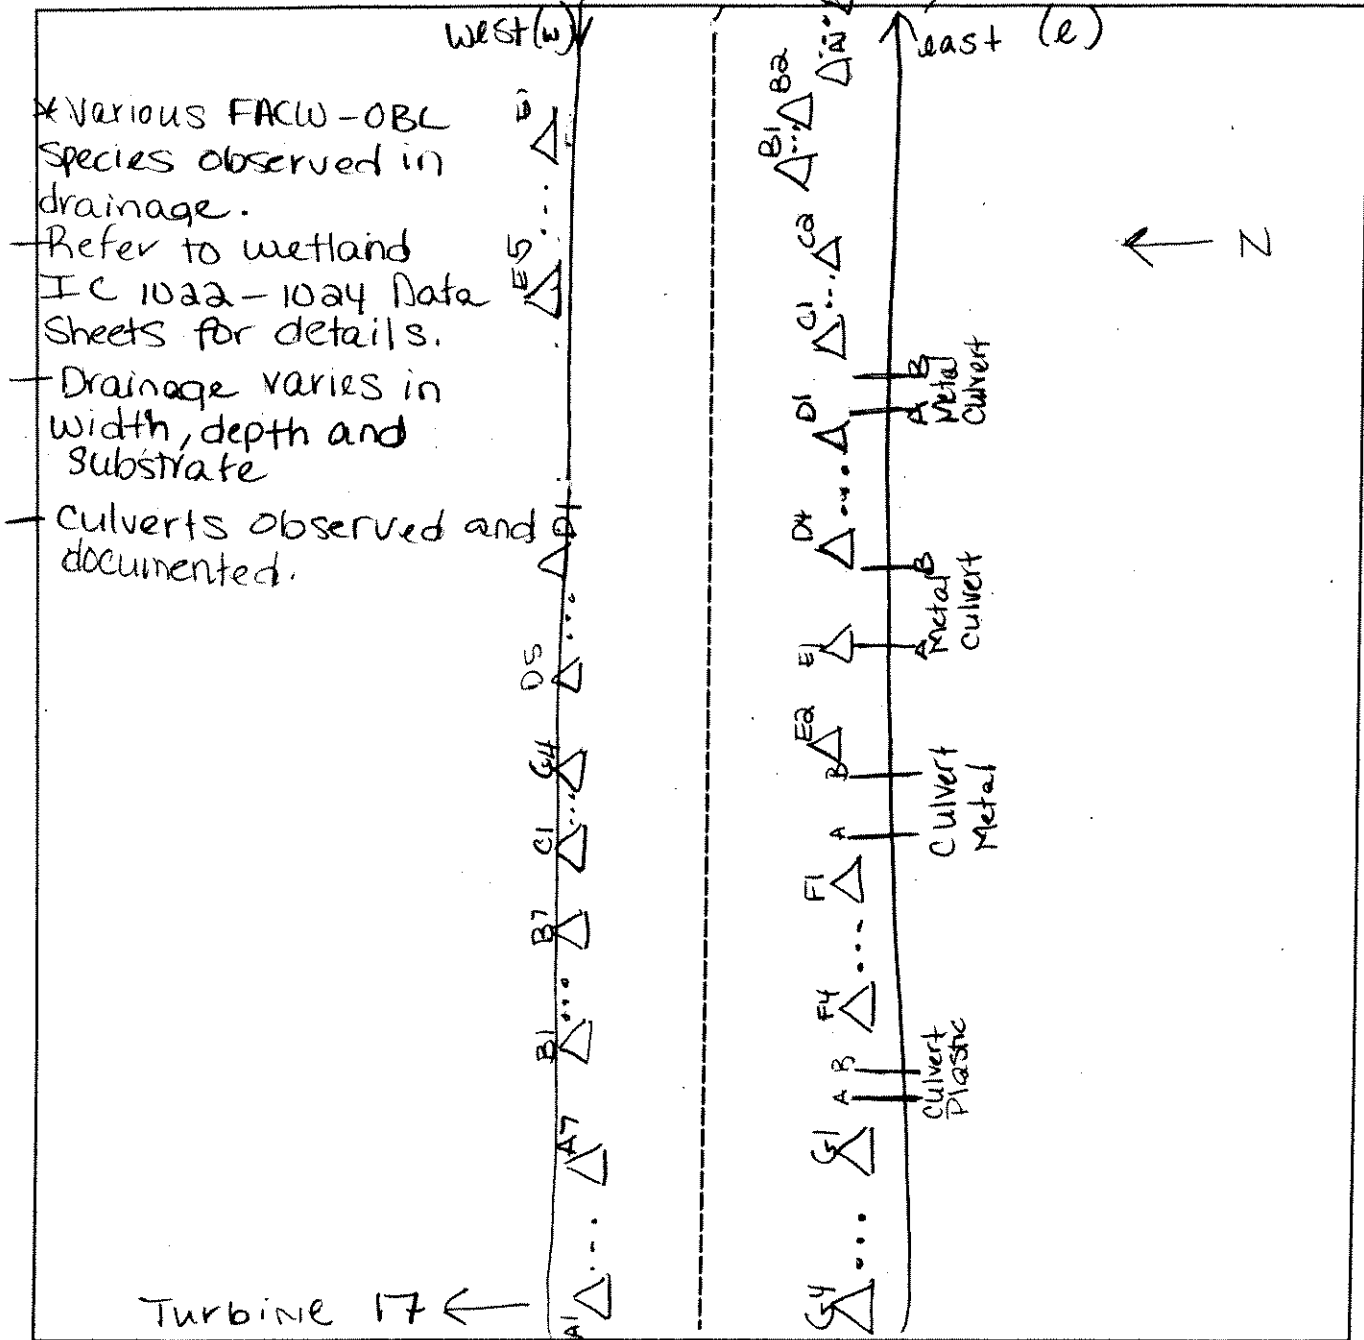 west (w)
east (e)
* Various FACW-OBL
species observed in
drainage.
- Refer to wetland
IC 1022-1024 Data
Sheets for details.
- Drainage varies in
width, depth and
substrate
- Culverts observed and
documented.
E5
D1
D5
C4
C1
B7
B1
A7
A1
Turbine 17
A1
B2
B1
C2
C1
B
A
Metal
Culvert
D1
D4
B
A
Metal
Culvert
E1
E2
B
A
Culvert
Metal
F1
F4
B
A
Culvert
Plastic
G1
G4
N